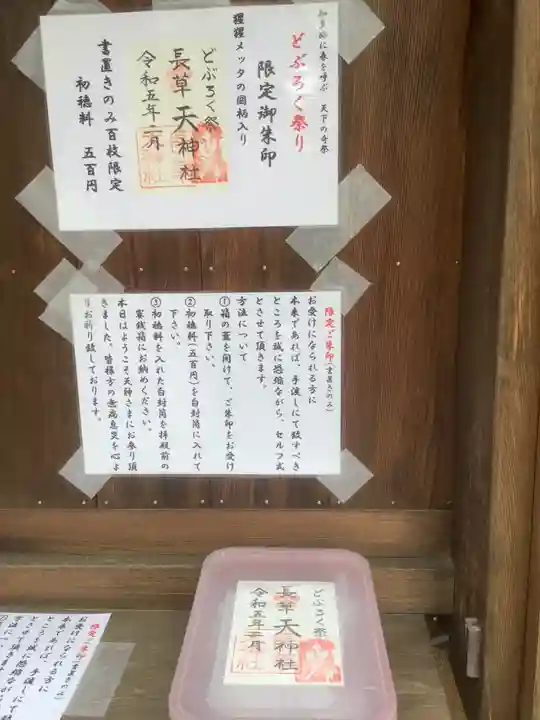 知多路に春を呼ぶ 天下の奇祭
どぶろく祭り
限定御朱印
猩猩メッタの図柄入り
どぶろく祭
長草天神社
令和五年二月
書置きのみ百枚限定
初穂料 五百円
限定ご朱印(書置きのみ)
お受けになられる方に
本来であれば、手渡しにて致すべき
ところを誠に恐縮ながら、セルフ式
とさせて頂きます。
方法について
①箱の蓋を開けて、ご朱印をお受け
取り下さい。
②初穂料(五百円)を白封筒に入れて
下さい。
③初穂料を入れた白封筒を拝殿前の
賽銭箱にお納めください。
本日はようこそ天神さまにお参り頂
きました。皆様方の無病息災を心よ
りお祈り致しております。
どぶろく祭
長草天神社
令和五年二月
限定ご朱印(書置きのみ)
お受けになられる方に
本来であれば、手渡し
ところを誠に恐縮なが
とさせて頂きます。
方法について